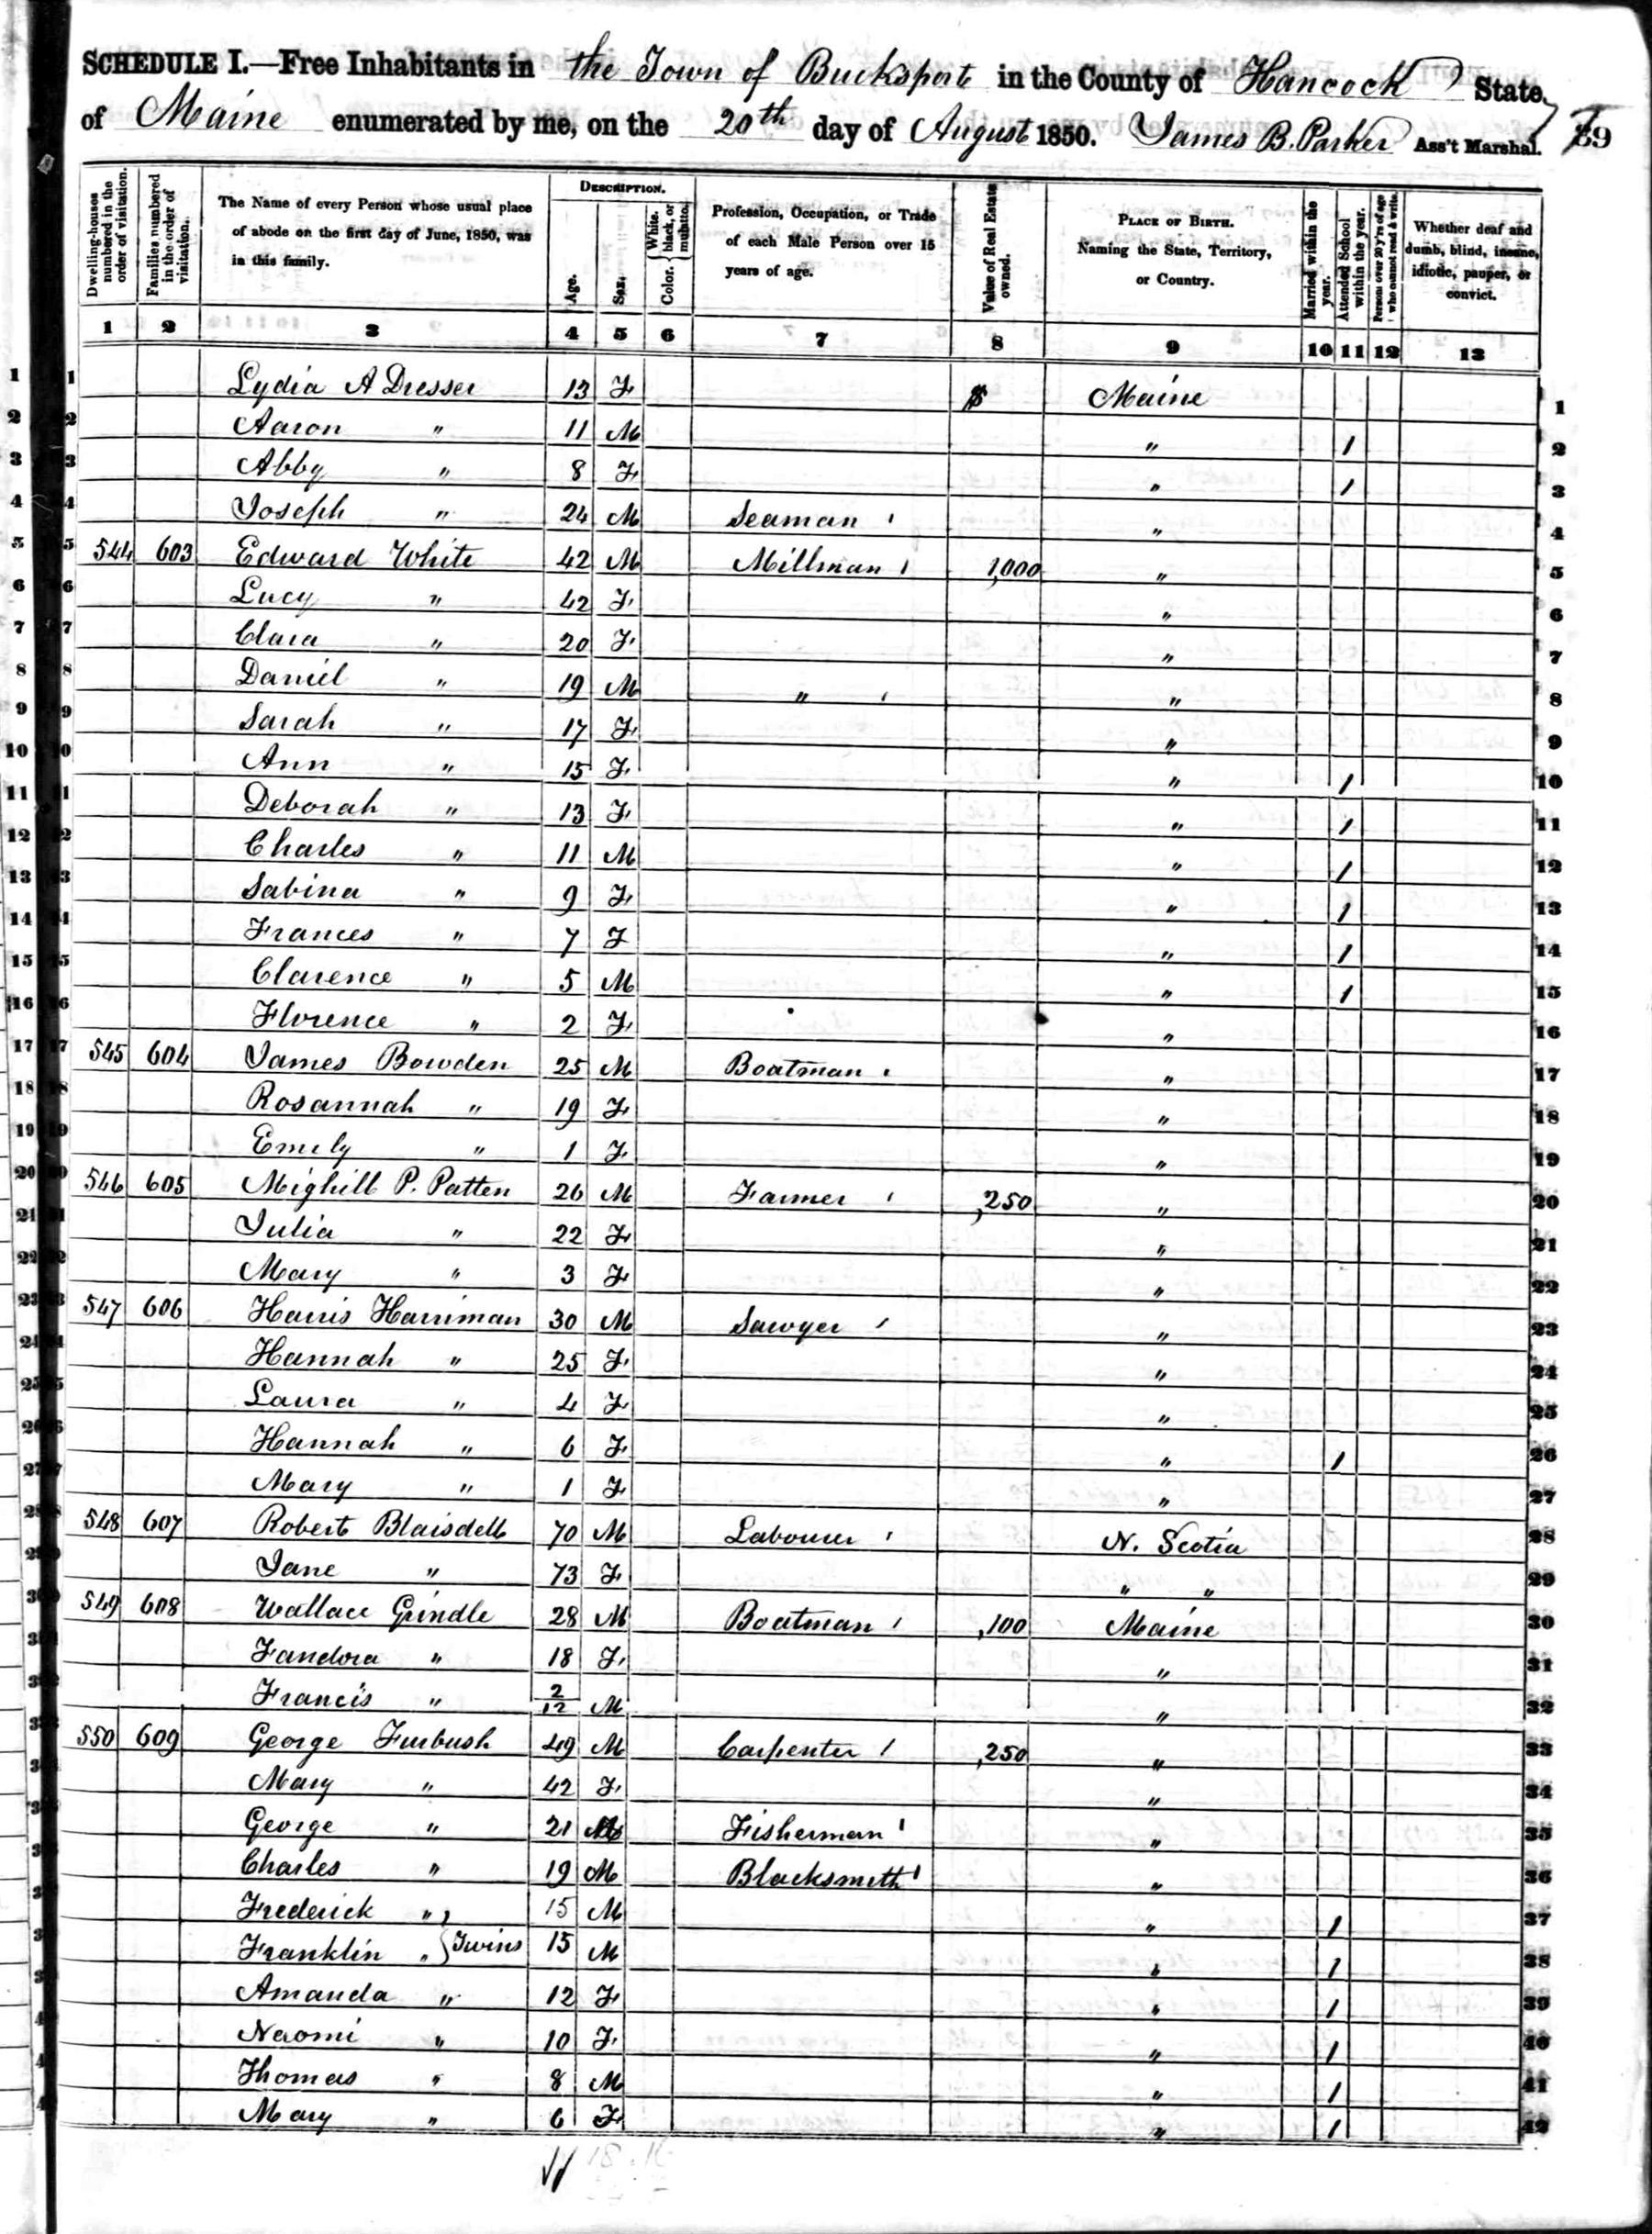 SCHEDULE I.—Free Inhabitants in the Town of Bucksport in the County of Hancock State
of Maine enumerated by me, on the 20th day of August 1850. James B. Parker Ass't Marshal. 39
Dwelling-houses numbered in the order of visitation.
Families numbered in the order of visitation.
The Name of every Person whose usual place of abode on the first day of June, 1850, was in this family.
DESCRIPTION.
Age.
Sex.
Color. { White, black, or mulatto.
Profession, Occupation, or Trade of each Male Person over 15 years of age.
Value of Real Estate owned.
PLACE OF BIRTH. Naming the State, Territory, or Country.
Married within the year.
Attended School within the year.
Persons over 20 y'rs of age who cannot read & write.
Whether deaf and dumb, blind, insane, idiotic, pauper, or convict.
1 2 3 4 5 6 7 8 9 10 11 12 13
1 1 Lydia A Dresser 13 F $ Maine 1
2 2 Aaron " 11 M " 1 2
3 3 Abby " 8 F " 1 3
4 4 Joseph " 24 M Seaman " 4
5 5 544 603 Edward White 42 M Millman 1,000 " 5
6 6 Lucy " 42 F " 6
7 7 Clara " 20 F " 7
8 8 Daniel " 19 M " " 8
9 9 Sarah " 17 F " 9
10 10 Ann " 15 F " 1 10
11 11 Deborah " 13 F " 1 11
12 12 Charles " 11 M " 1 12
13 13 Sabina " 9 F " 1 13
14 14 Frances " 7 F " 1 14
15 15 Clarence " 5 M " 1 15
16 16 Florence " 2 F " 16
17 17 545 604 James Bowden 25 M Boatman " 17
18 18 Rosannah " 19 F " 18
19 19 Emily " 1 F " 19
20 20 546 605 Mighill P. Patten 26 M Farmer ,250 " 20
21 21 Julia " 22 F " 21
22 22 Mary " 3 F " 22
23 23 547 606 Harris Harriman 30 M Sawyer " 23
24 24 Hannah " 25 F " 24
25 25 Laura " 4 F " 25
26 26 Hannah " 6 F " 1 26
27 27 Mary " 1 F " 27
28 28 548 607 Robert Blaisdell 70 M Labourer N. Scotia 28
Jane " 73 F " " 29
549 608 Wallace Grindle 28 M Boatman ,100 Maine 30
Fandora " 18 F " 31
Francis " 2/12 M " 32
550 609 George Furbush 49 M Carpenter ,250 " 33
Mary " 42 F " 34
George " 21 M Fisherman " 35
Charles " 19 M Blacksmith " 36
Frederick " } 15 M " 1 37
Franklin " } Twins 15 M " 1 38
Amanda " 12 F " 1 39
Naomi " 10 F " 1 40
Thomas " 8 M " 1 41
Mary " 6 F " 1 42